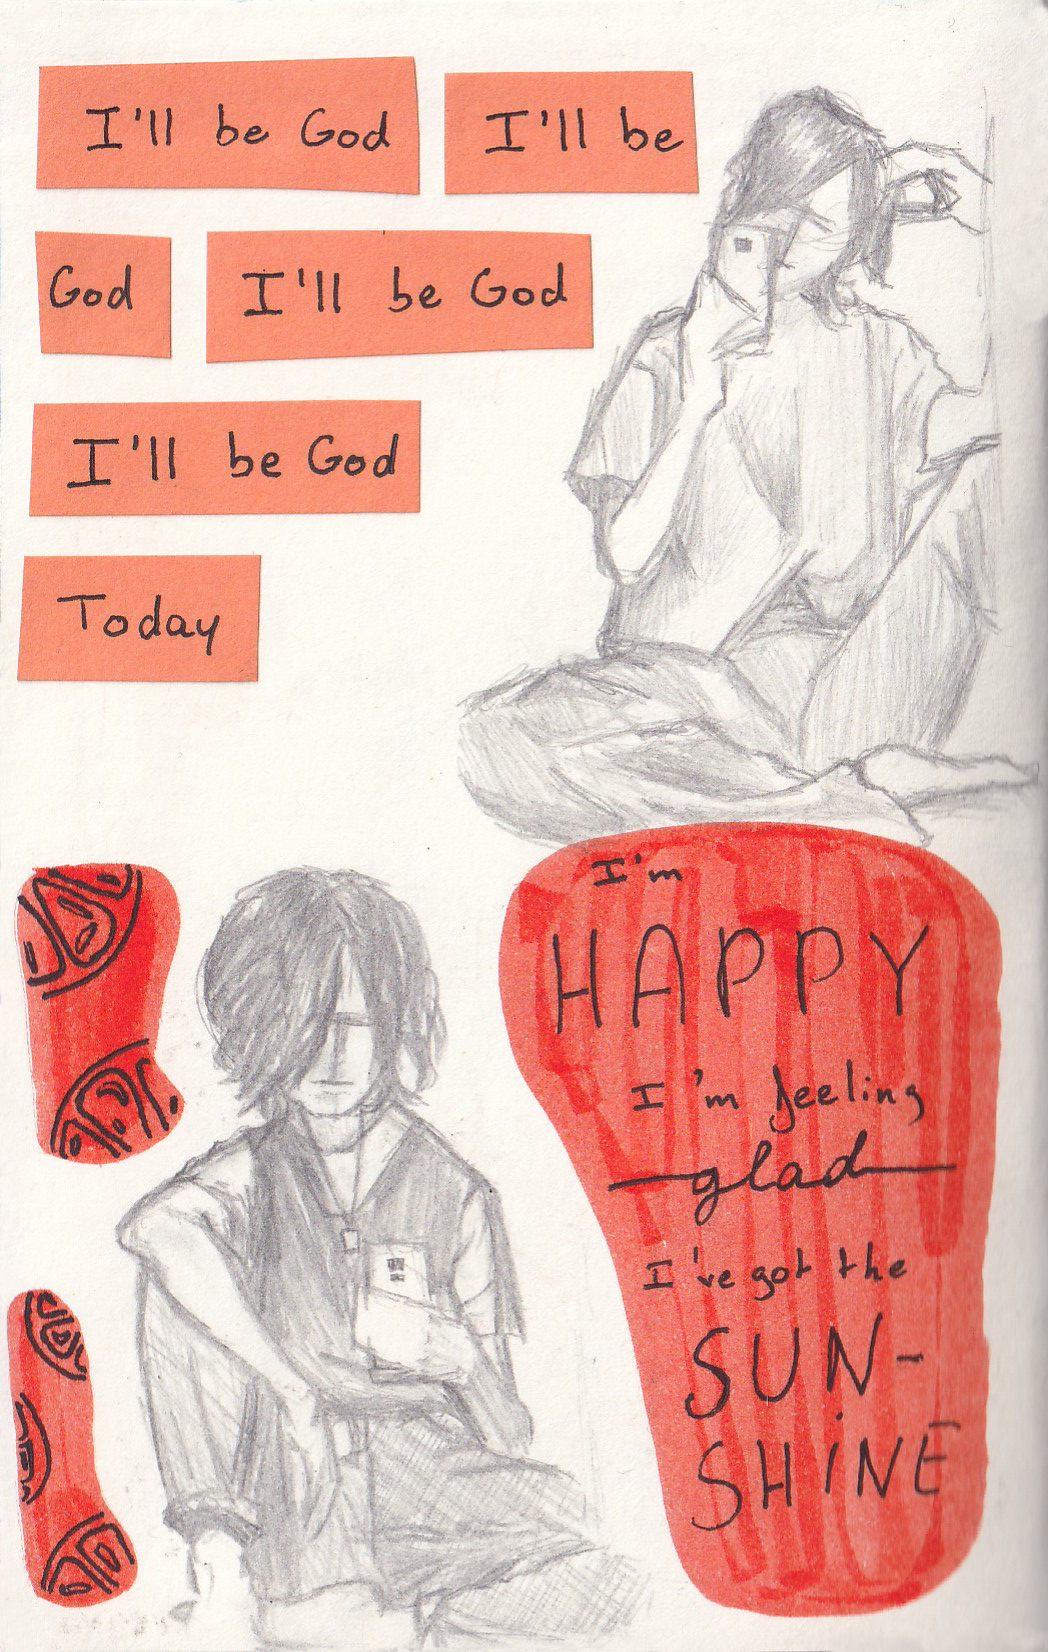 I'll be God I'll be
God I'll be God
I'll be God
Today
I'm
HAPPY
I'm feeling
glad
I've got the
SUN-
SHiNE